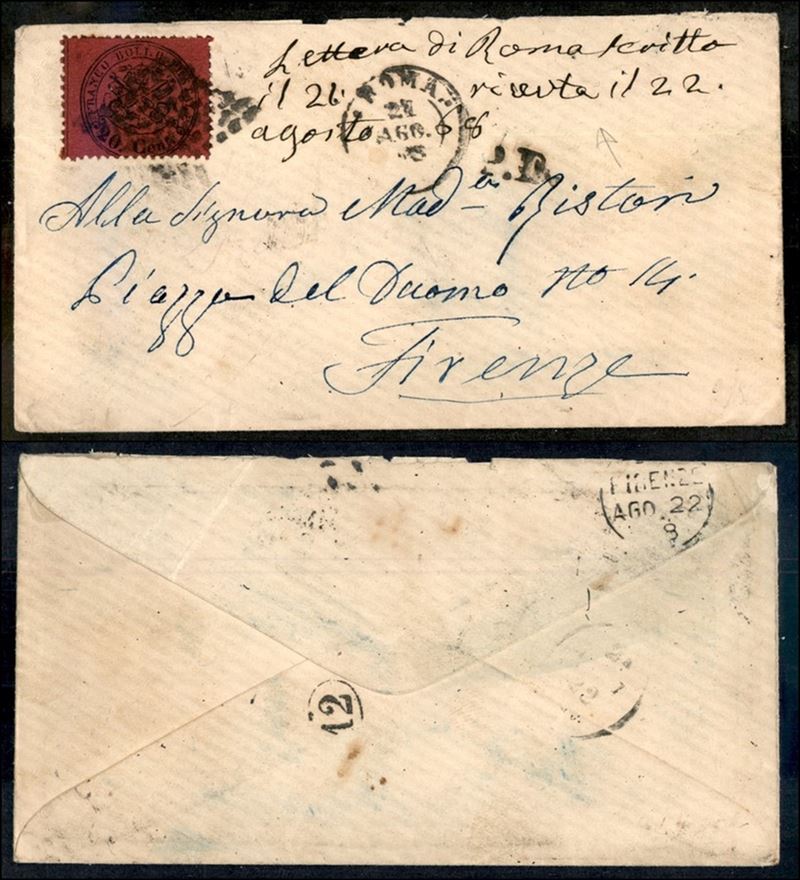 FRANCO BOLLO
20 Cent.
Lettera di Roma scritto
il 21. ricevta il 22.
agosto 68
ROMA
21
AGO.
68
P.D.
Alla Signora Mad.a Ristori
Piazza del Duomo No 14.
Firenze
FIRENZE
AGO. 22
8
12